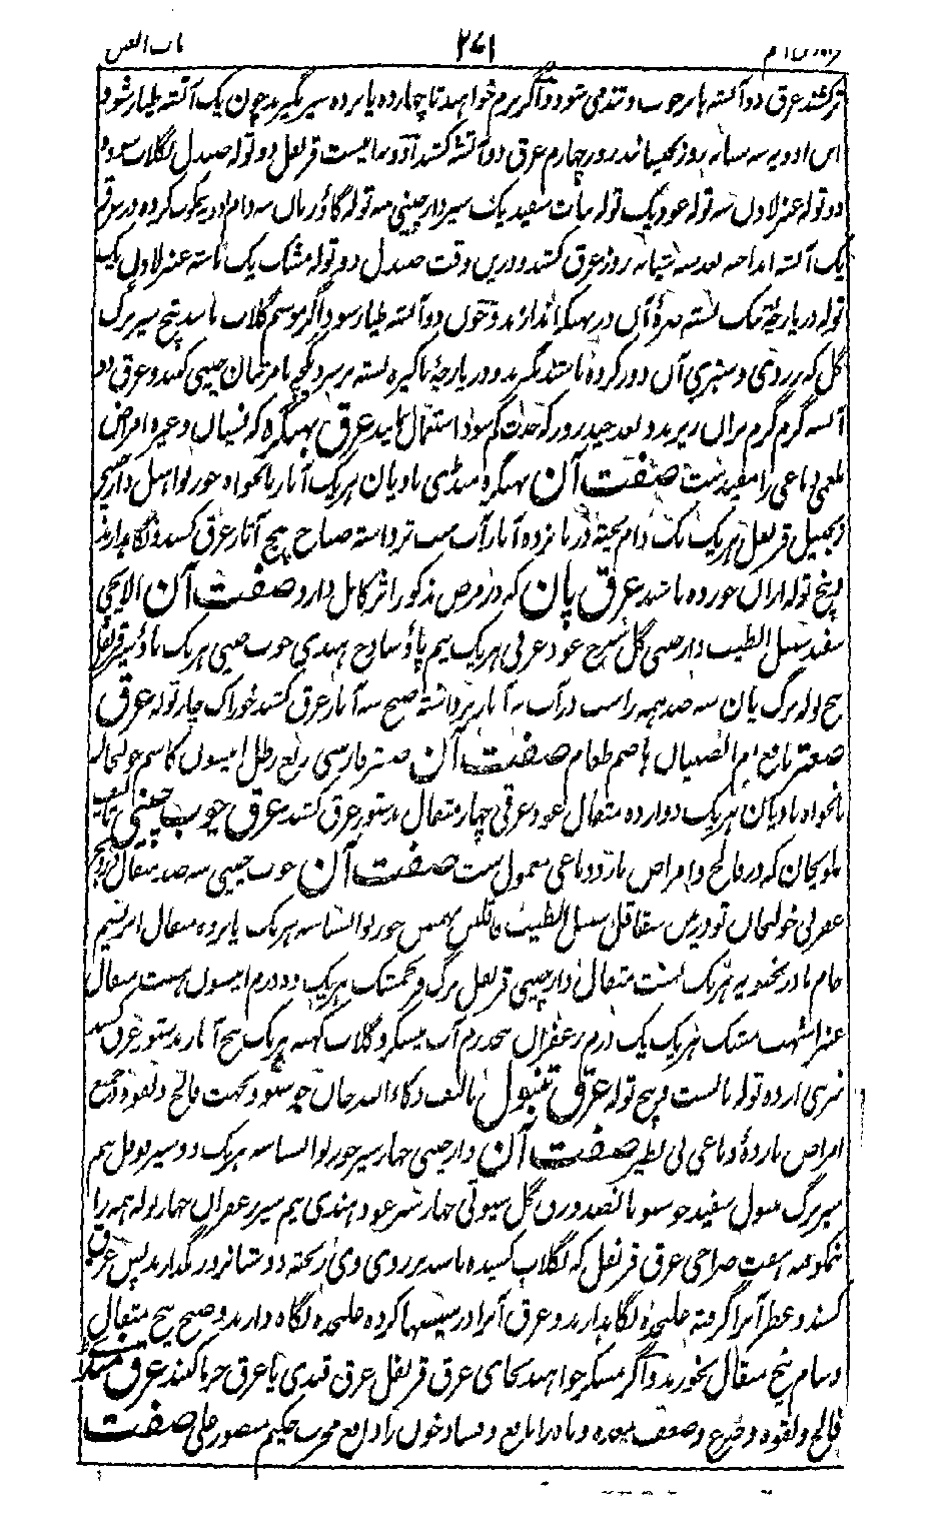 باب العین ٢٤١
ترکشند عرق دو آتشه باید خوب و تند می شود و اگر نرم خواهند تا چهارده پانزده سیر بگیرند چون یک آتشه طیار شود
این ادویه سه شبانه روز بخیسانند روز چهارم عرق دو آتشه کشند قرنفل دو توله صندل بگلاب سوده
دو توله عنبر لادن سه توله عود یک توله نبات سفید یک سیر دارچینی سه توله گاؤزبان سه دام ادویه کوب کرده در عرق
یک آتشه انداخته بعد سه شبانه روز عرق کشند و درین وقت صندل دو توله مشک یک ماشه عنبر لادن یک
توله در پارچه تنک بسته صره آن در بهبکه اندازند و چون دو آتشه طیار شود اگر موسم گلاب باشد پنج سیر برگ
گل که زردی و سبزی آن دور کرده باشند بگیرند و در پارچهٔ پاکیزه بسته بر سر دیگچه یا مرتبان چینی کنند و عرق دو
آتشه گرم گرم بران ریزند و بعد چند روز که حدت کم شود استعمال نمایند عرق بهنگره که نسیان و غیره امراض
بلغمی دماغی را مفید ست صفت آن بهنگره منڈی بادیان هریک آثار نانخواه جوزبوا هیل دارچینی
زنجبیل قرنفل هریک یک دام پخته در پانزده آثار آب شب تر داشته صباح پنج آثار عرق کشند و نگاهدارند
و پنج توله ازان خورده باشند عرق پان که در مرض مذکور اثر کامل دارد صفت آن الایچی
سفید سنبل الطیب دارچینی گل سرخ عود غرقی هریک نیم پاؤ ساذج هندی چوب چینی هریک پاؤ سیر قرنفل
پنج توله برگ پان سه صد همه را شب در آب نه آثار تر داشته صبح سه آثار عرق کشند خوراک چار توله عرق
صعتر نافع ام الصبیان هاضم طعام صفت آن صعتر فارسی ربع رطل انیسون کاشم خولنجان
نانخواه بادیان هریک دوازده مثقال عود غرقی چهار مثقال بدستور عرق کشند عرق چوب چینی تالیف
که در فالج و امراض بارد دماغی معمول ست صفت آن چوب چینی سه صد مثقال
خولنجان تودرین شقاقل سنبل الطیب بهمن جوزبوا بسباسه هریک پانزده مثقال ابریشم
خام بادرنجبویه هریک هشت مثقال دارچینی قرنفل هریک ده درم انیسون بست مثقال
عنبر اشهب مشک هریک یک درم زعفران پنجدرم آب میسکر و گلاب کهنه هریک پنج آثار بدستور عرق کشند
توله تا بست و پنج توله عرق تنبول تالیف ذکاءالله خان جهت فالج و لقوه و جمیع
امراض باردهٔ دماغی بی نظیر صفت آن دارچینی چهار سیر جوزبوا بسباسه هریک دو سیر فوفل نیم
سیر برگ تنبول سفید خوشبو پانصد ورق گل سیوتی چهار سیر عود هندی نیم سیر زعفران چهار توله همه را
نیمکوفته هفت صراحی عرق قرنفل که بگلاب کشیده باشند بر روی وی ریخته دو شبانروز بگذارند پس عرق
کشند و عطر آنرا گرفته علیحده نگاهدارند و عرق آنرا در شیشها کرده علیحده نگاه دارند و صبح پنج مثقال
و شام پنج مثقال بخورند و اگر مسکر خواهند بجای عرق قرنفل عرق قندی یا عرق خرما کنند عرق
فالج و لقوه و صرع و ضعف معده و باه را نافع و فساد خون را دافع مجرب حکیم منصور علی صفت